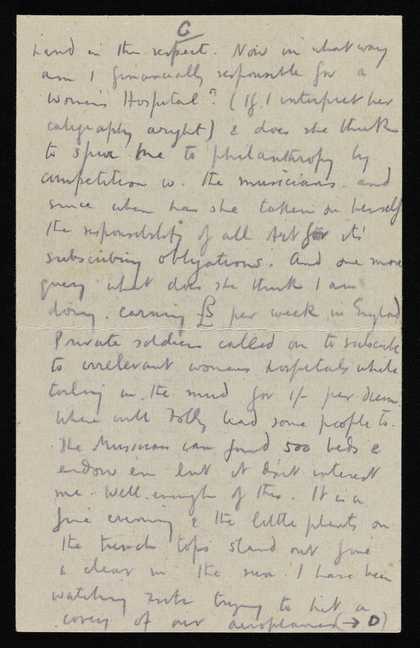 C
hand in the respect. Now in what way
am I financially responsible for a
Womens Hospital? (If I interpret her
caligraphy aright) & does she think
to spur me to philanthropy by
competition w. the musicians. and
since when has she taken on herself
the responsibility of all Art for its'
subscribing obligations. And one more
query what does she think I am
doing. earning £5 per week in England
Private soldiers called on to subscribe
to irrelevant womens hospitals while
toiling in the mud for 1/- per diem.
Where will Folly lead some people to.
The Musicians can found 500 beds &
endow em but it dont interest
me. Well enough of this. It is a
fine evening & the little plants on
the trench tops stand out fine
& clear in the sun. I have been
watching trying to hit a
covey of our aeroplanes (→ D)